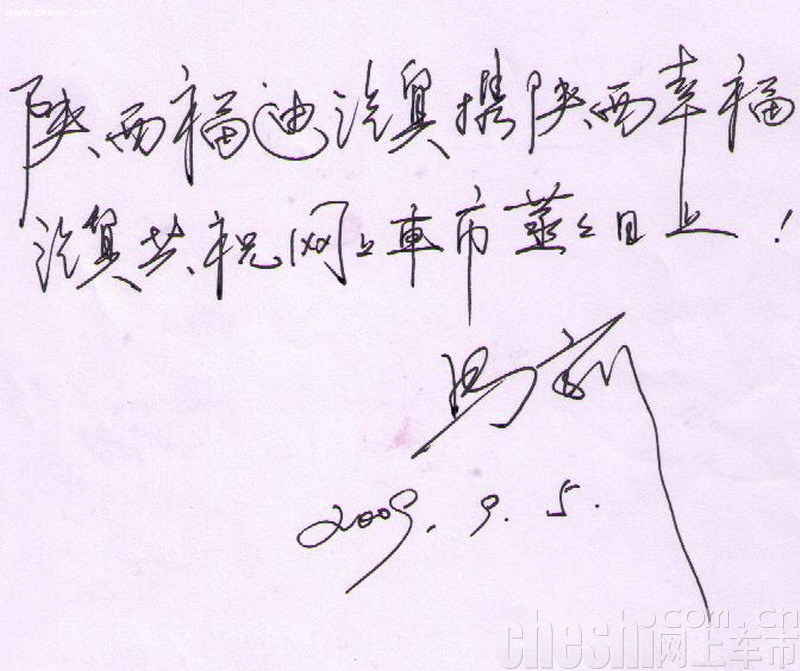 www.cheshi.com
陕西福迪汽贸携陕西幸福
汽贸共祝网上车市蒸蒸日上！
2009.9.5.
cheshi.com.cn
网上车市